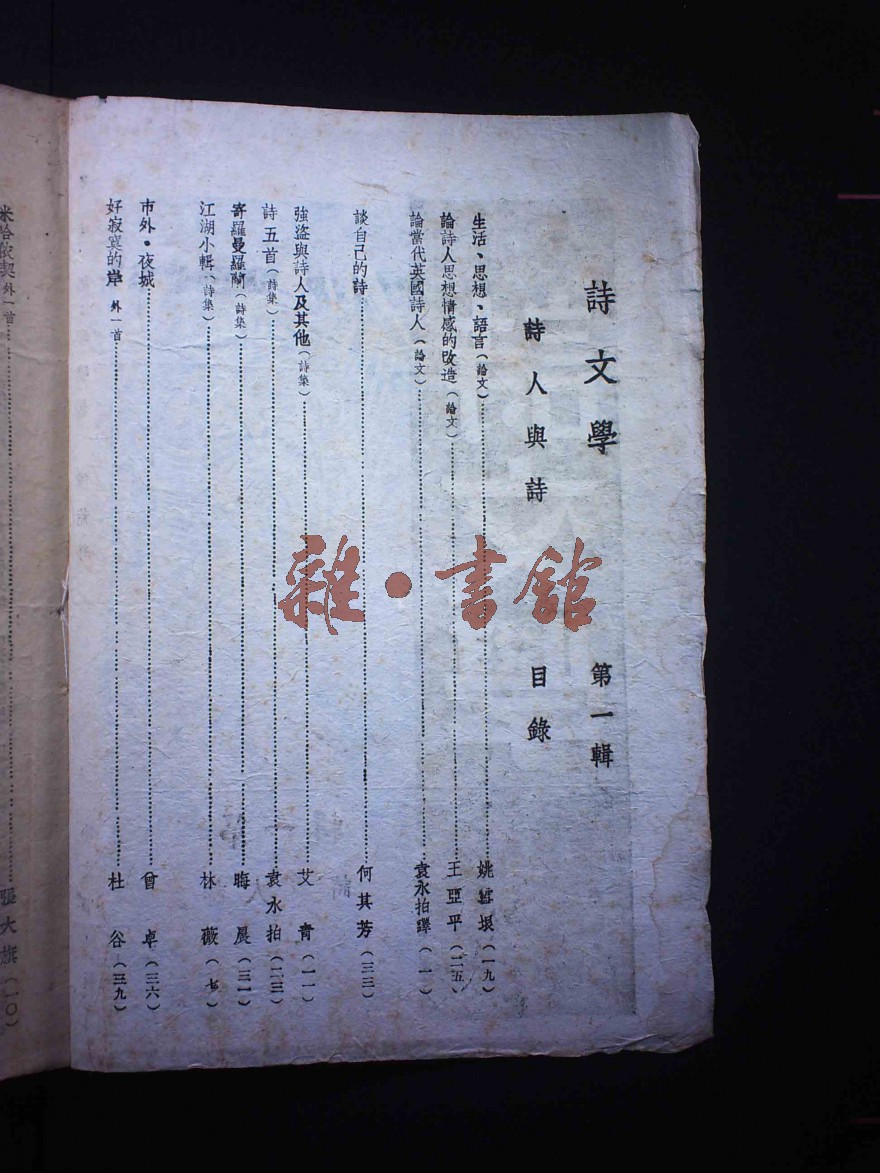 詩文學 第一輯
詩人與詩 目錄
生活、思想、語言（論文）姚雪垠（一九）
論詩人思想情感的改造（論文）王亞平（二五）
論當代英國詩人（論文）袁水拍譯（一）
談自己的詩 何其芳（三三）
強盜與詩人及其他（詩集）艾青（一一）
詩五首（詩集）袁水拍（二三）
寄羅曼羅蘭（詩集）晦晨（三一）
江湖小輯（詩集）林薇（七）
市外·夜城 曾卓（三六）
好寂寞的岸 外一首 杜谷（三九）
外一首 張大旗（一〇）
雜·書館